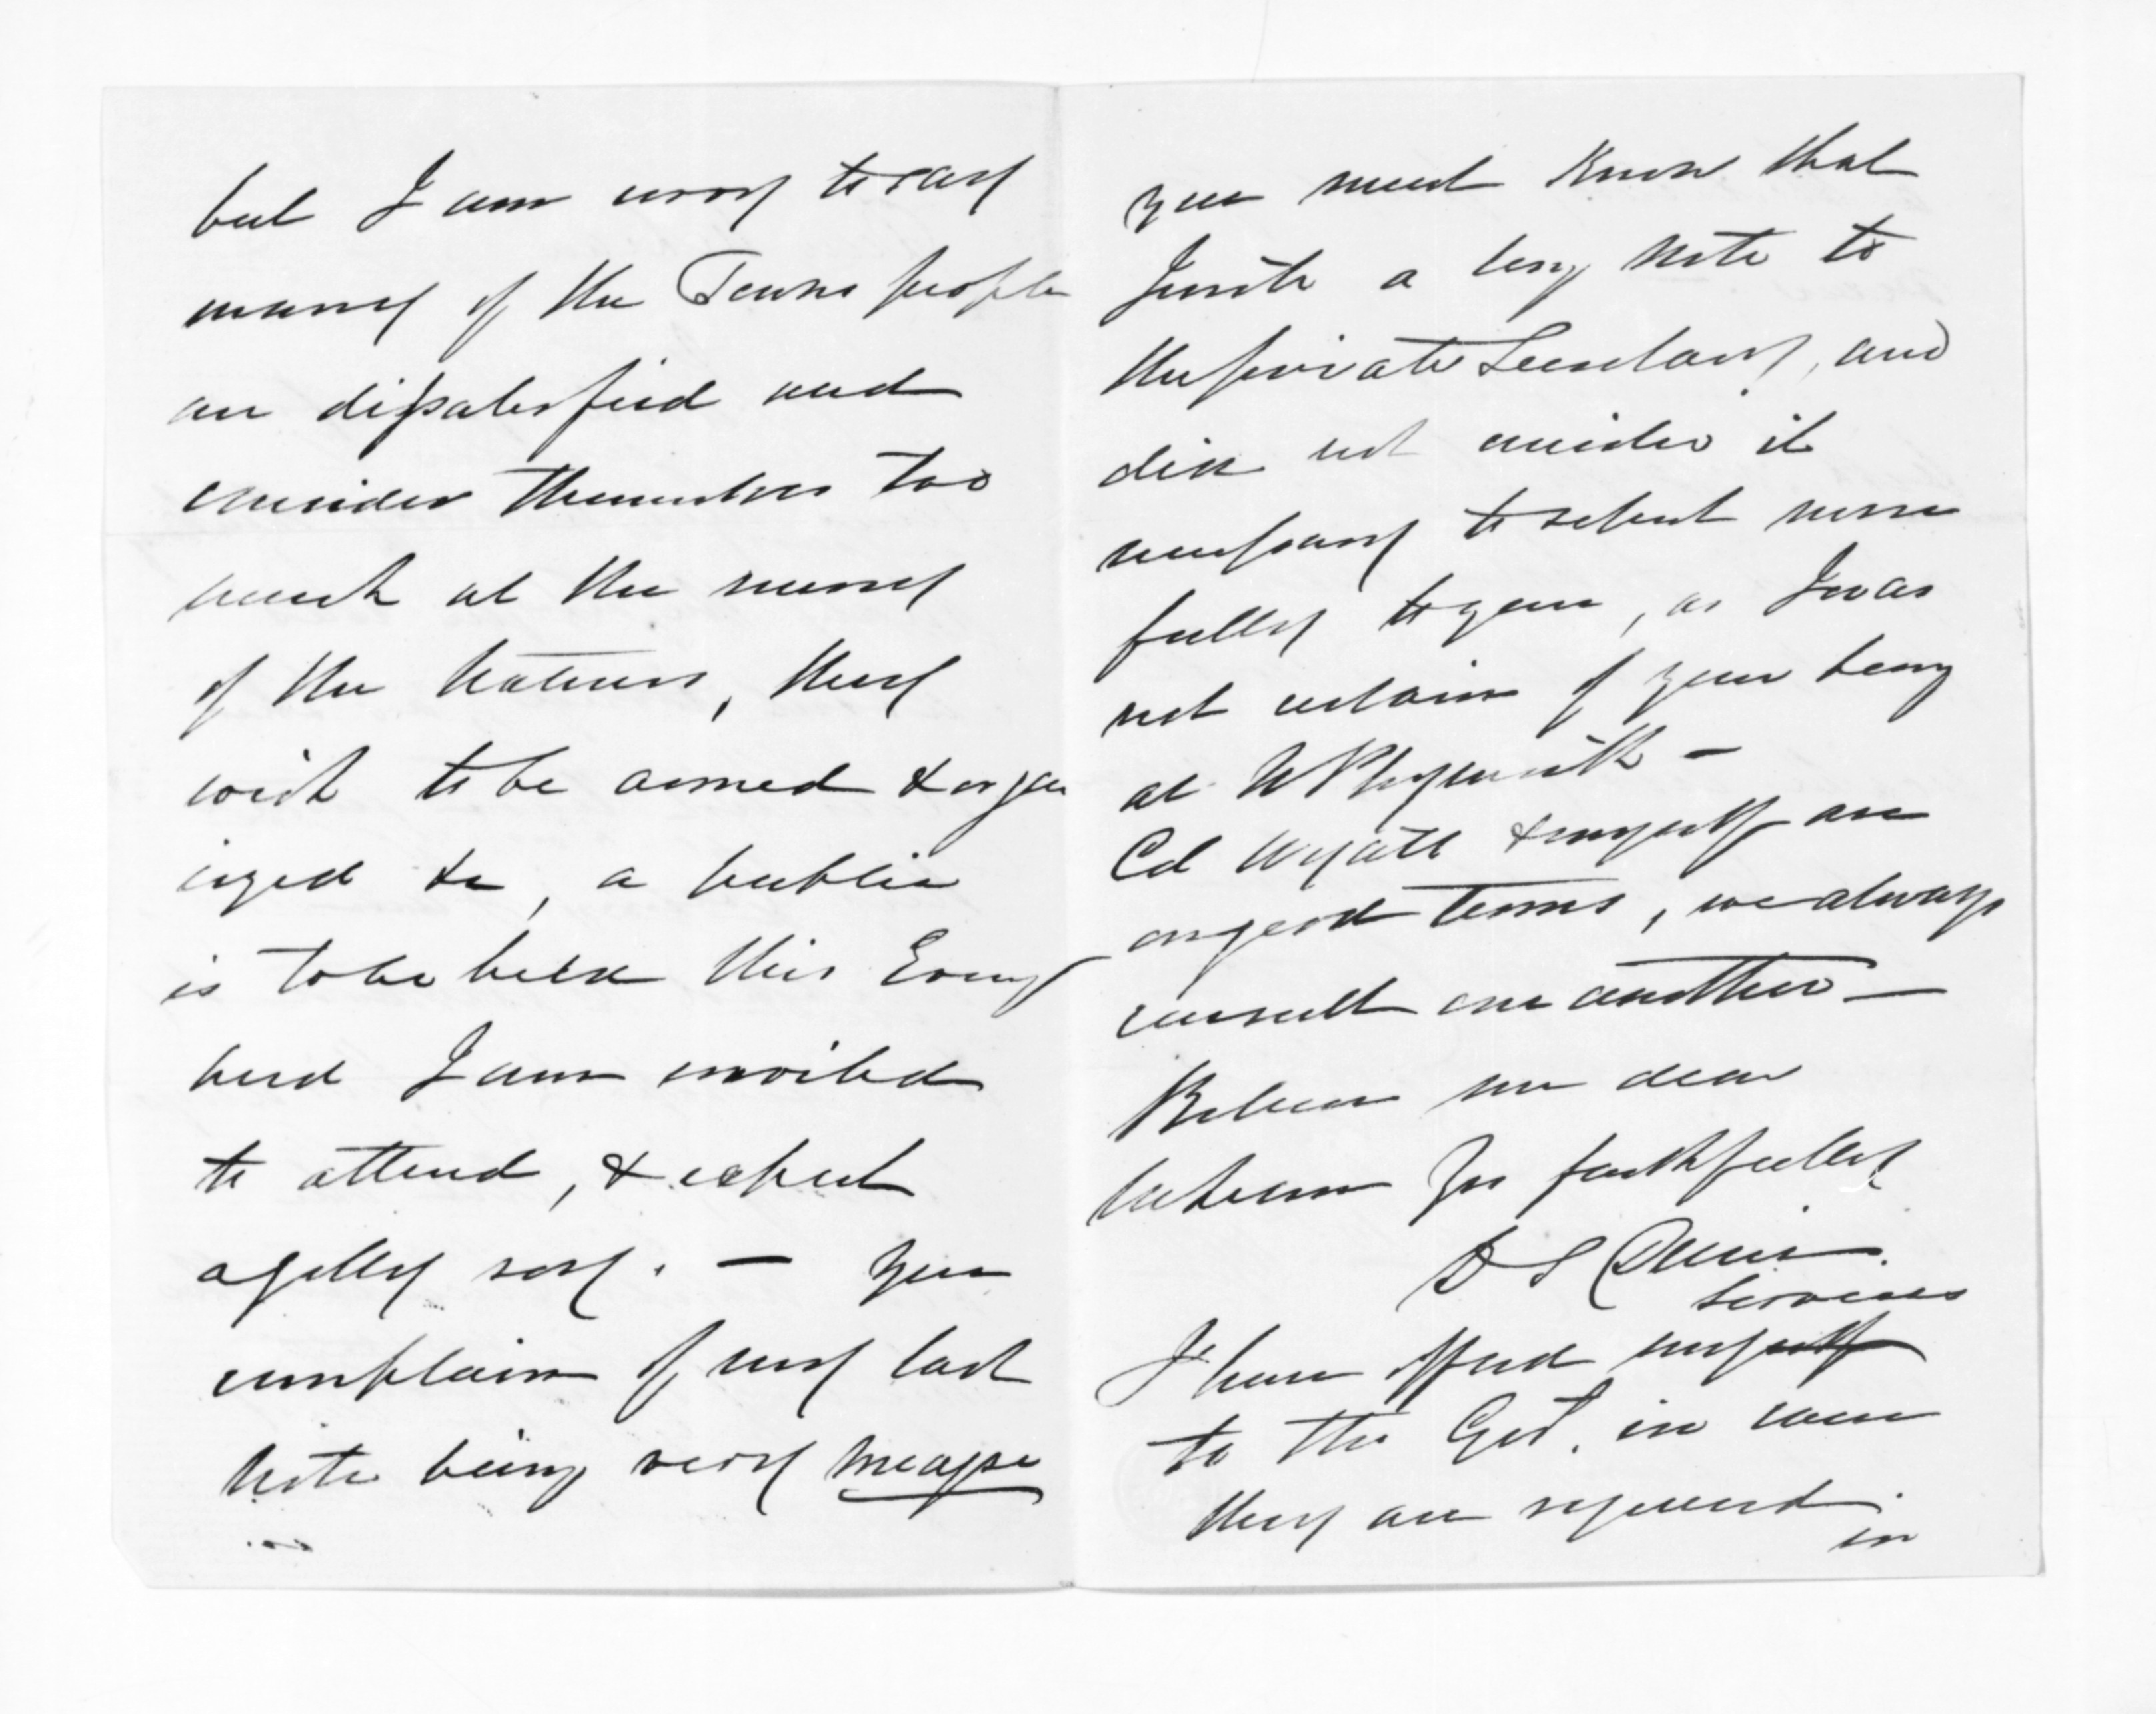 but I am sorry to say
many of the Towns people
are dissatisfied and
consider themselves too
much at the mercy
of the Natives, they
wish to be armed & organ
ized &c, a public
is to be held this Eveng
and I am invited
to attend, & expect
a jolly row. — You
complain of my last
note being very meagre
you must know that
I wrote a long note to
the private Secretary, and
did not consider it
necessary to detail more
fully to you, as I was
not certain of your being
at N Plymouth —
Col Wyatt & myself are
on good terms, we always
consult one another —
Believe me dear
Yrs faithfully
D S Durie.
services
I have offered my
to the Govt. in case
they are required
in